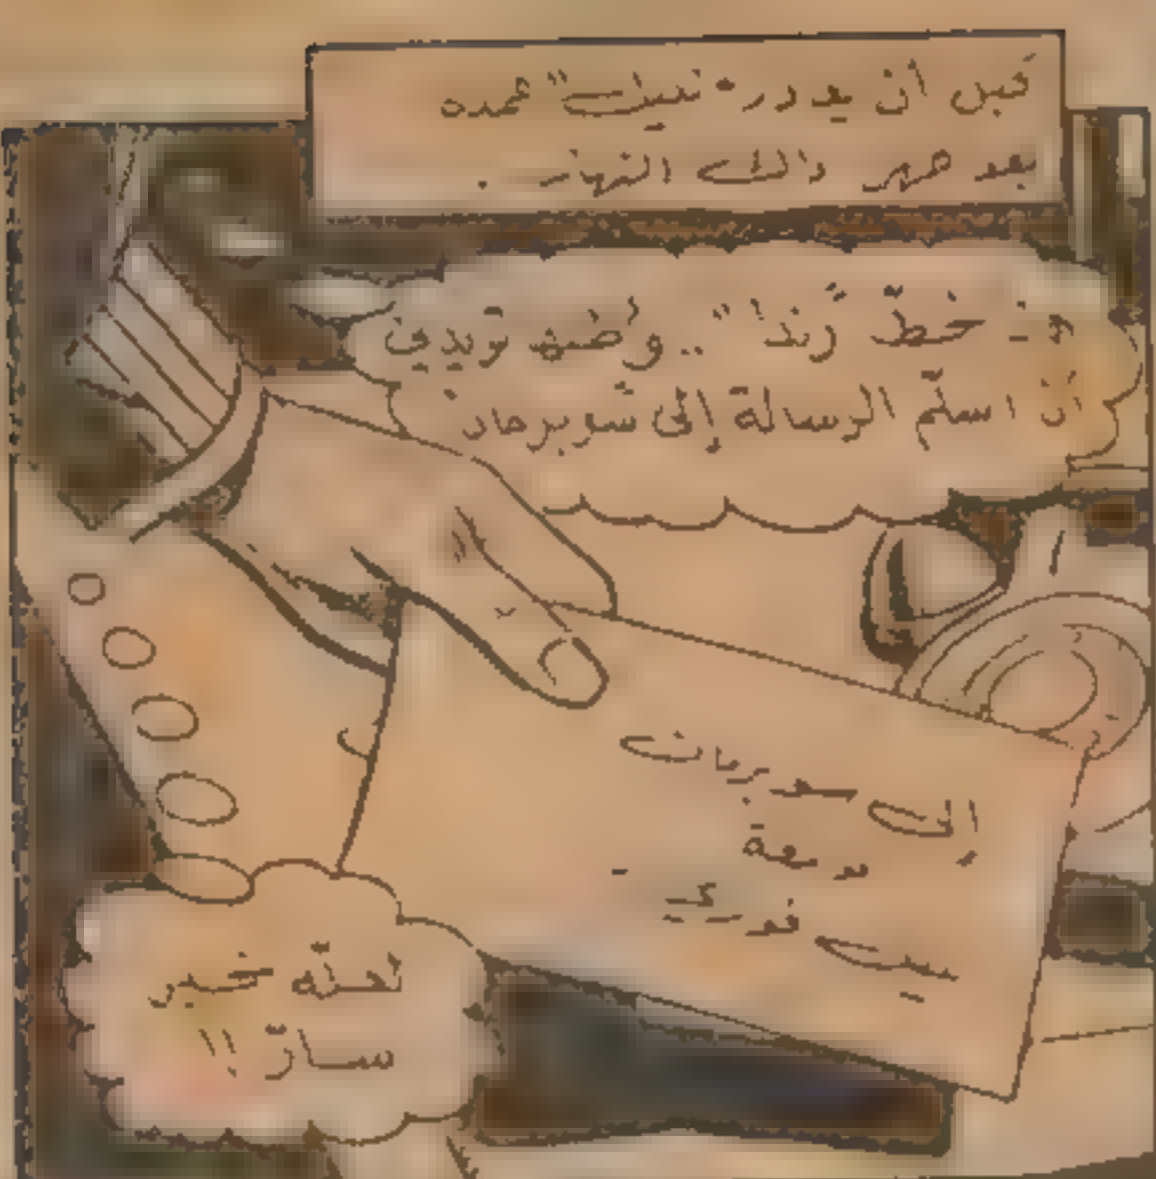 قبل أن يغادر "نبيل" عمله
بعد ظهر ذلك النهار .
هذا خطّ "رندا" .. وأظنها تريدني
أن اسلّم الرسالة إلى سوبرمان
إلى سوبرمان
بواسطة
نبيل فوزي
لعلّه خبر
سارّ !!